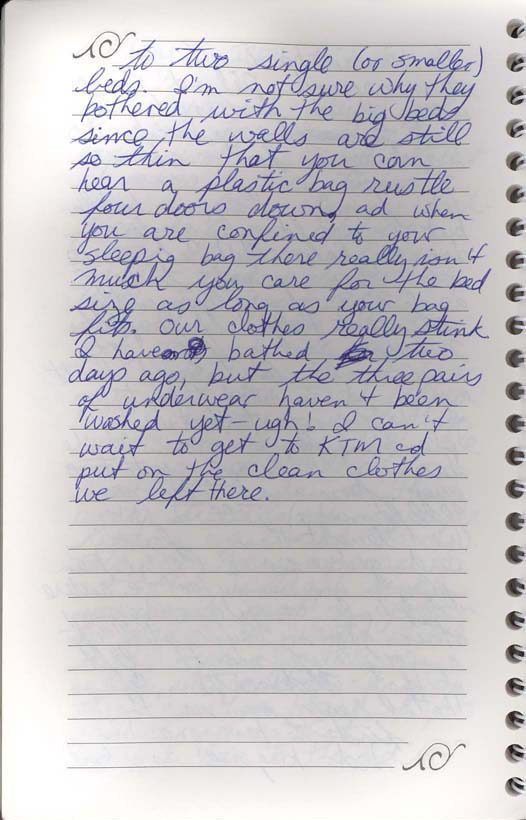 to two single (or smaller)
beds. I'm not sure why they
bothered with the big beds
since the walls are still
so thin that you can
hear a plastic bag rustle
four doors down, ad when
you are confined to your
sleepig bag there really isn't
much you care for the bed
size as long as your bag
fits. Our clothes really stink
I have bathed two
days ago, but the three pairs
of underwear haven't been
washed yet - ugh! I can't
wait to get to KTM ad
put on the clean clothes
we left there.